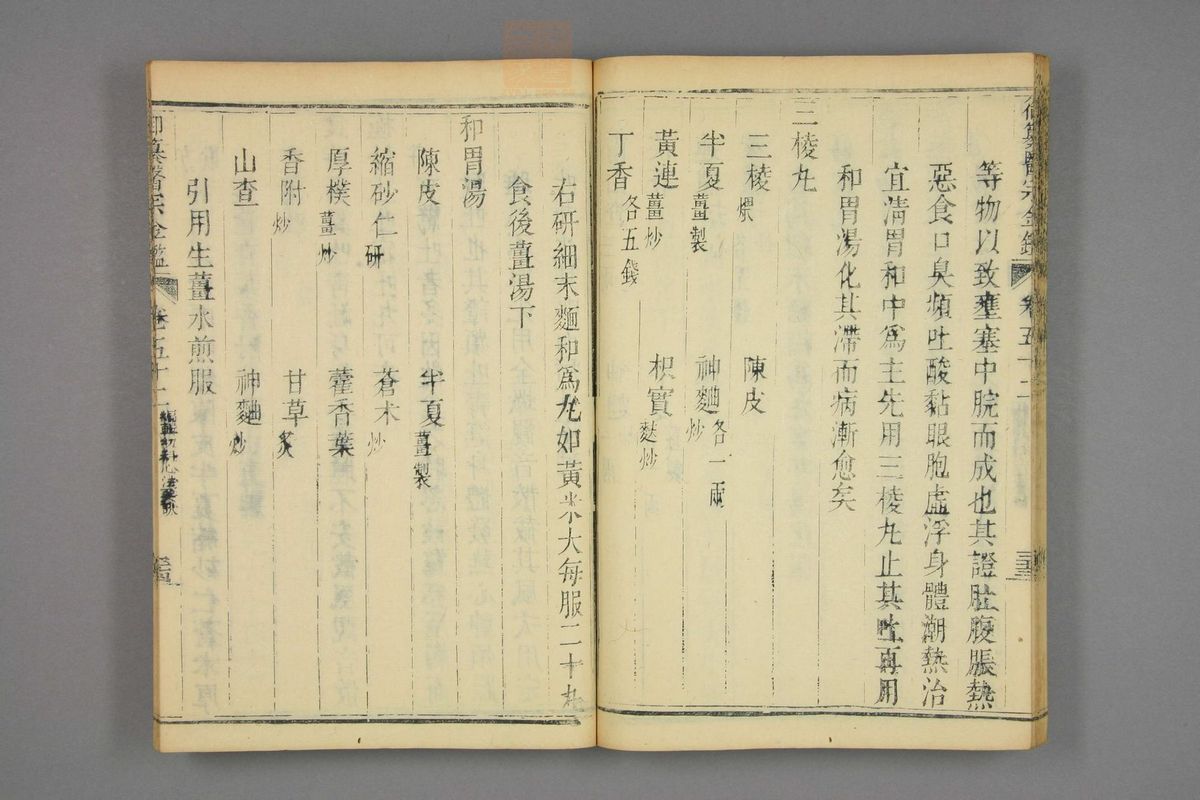 等物以致壅塞中脘而成也其證肚腹脹熱
惡食口臭頻吐酸黏眼胞虛浮身體潮熱治
宜淸胃和中爲主先用三棱丸止其吐再用
和胃湯化其滯而病漸愈矣
三棱丸
三棱煨 陳皮
半夏薑製 神麯炒各一兩
黃連薑炒 枳實麩炒
丁香各五錢
右研細末麵和爲丸如黃米大每服二十丸
食後薑湯下
和胃湯
陳皮 半夏薑製
縮砂仁研 蒼朮炒
厚樸薑炒 藿香葉
香附炒 甘草炙
山查 神麯炒
引用生薑水煎服
御纂醫宗金鑑 卷五十二